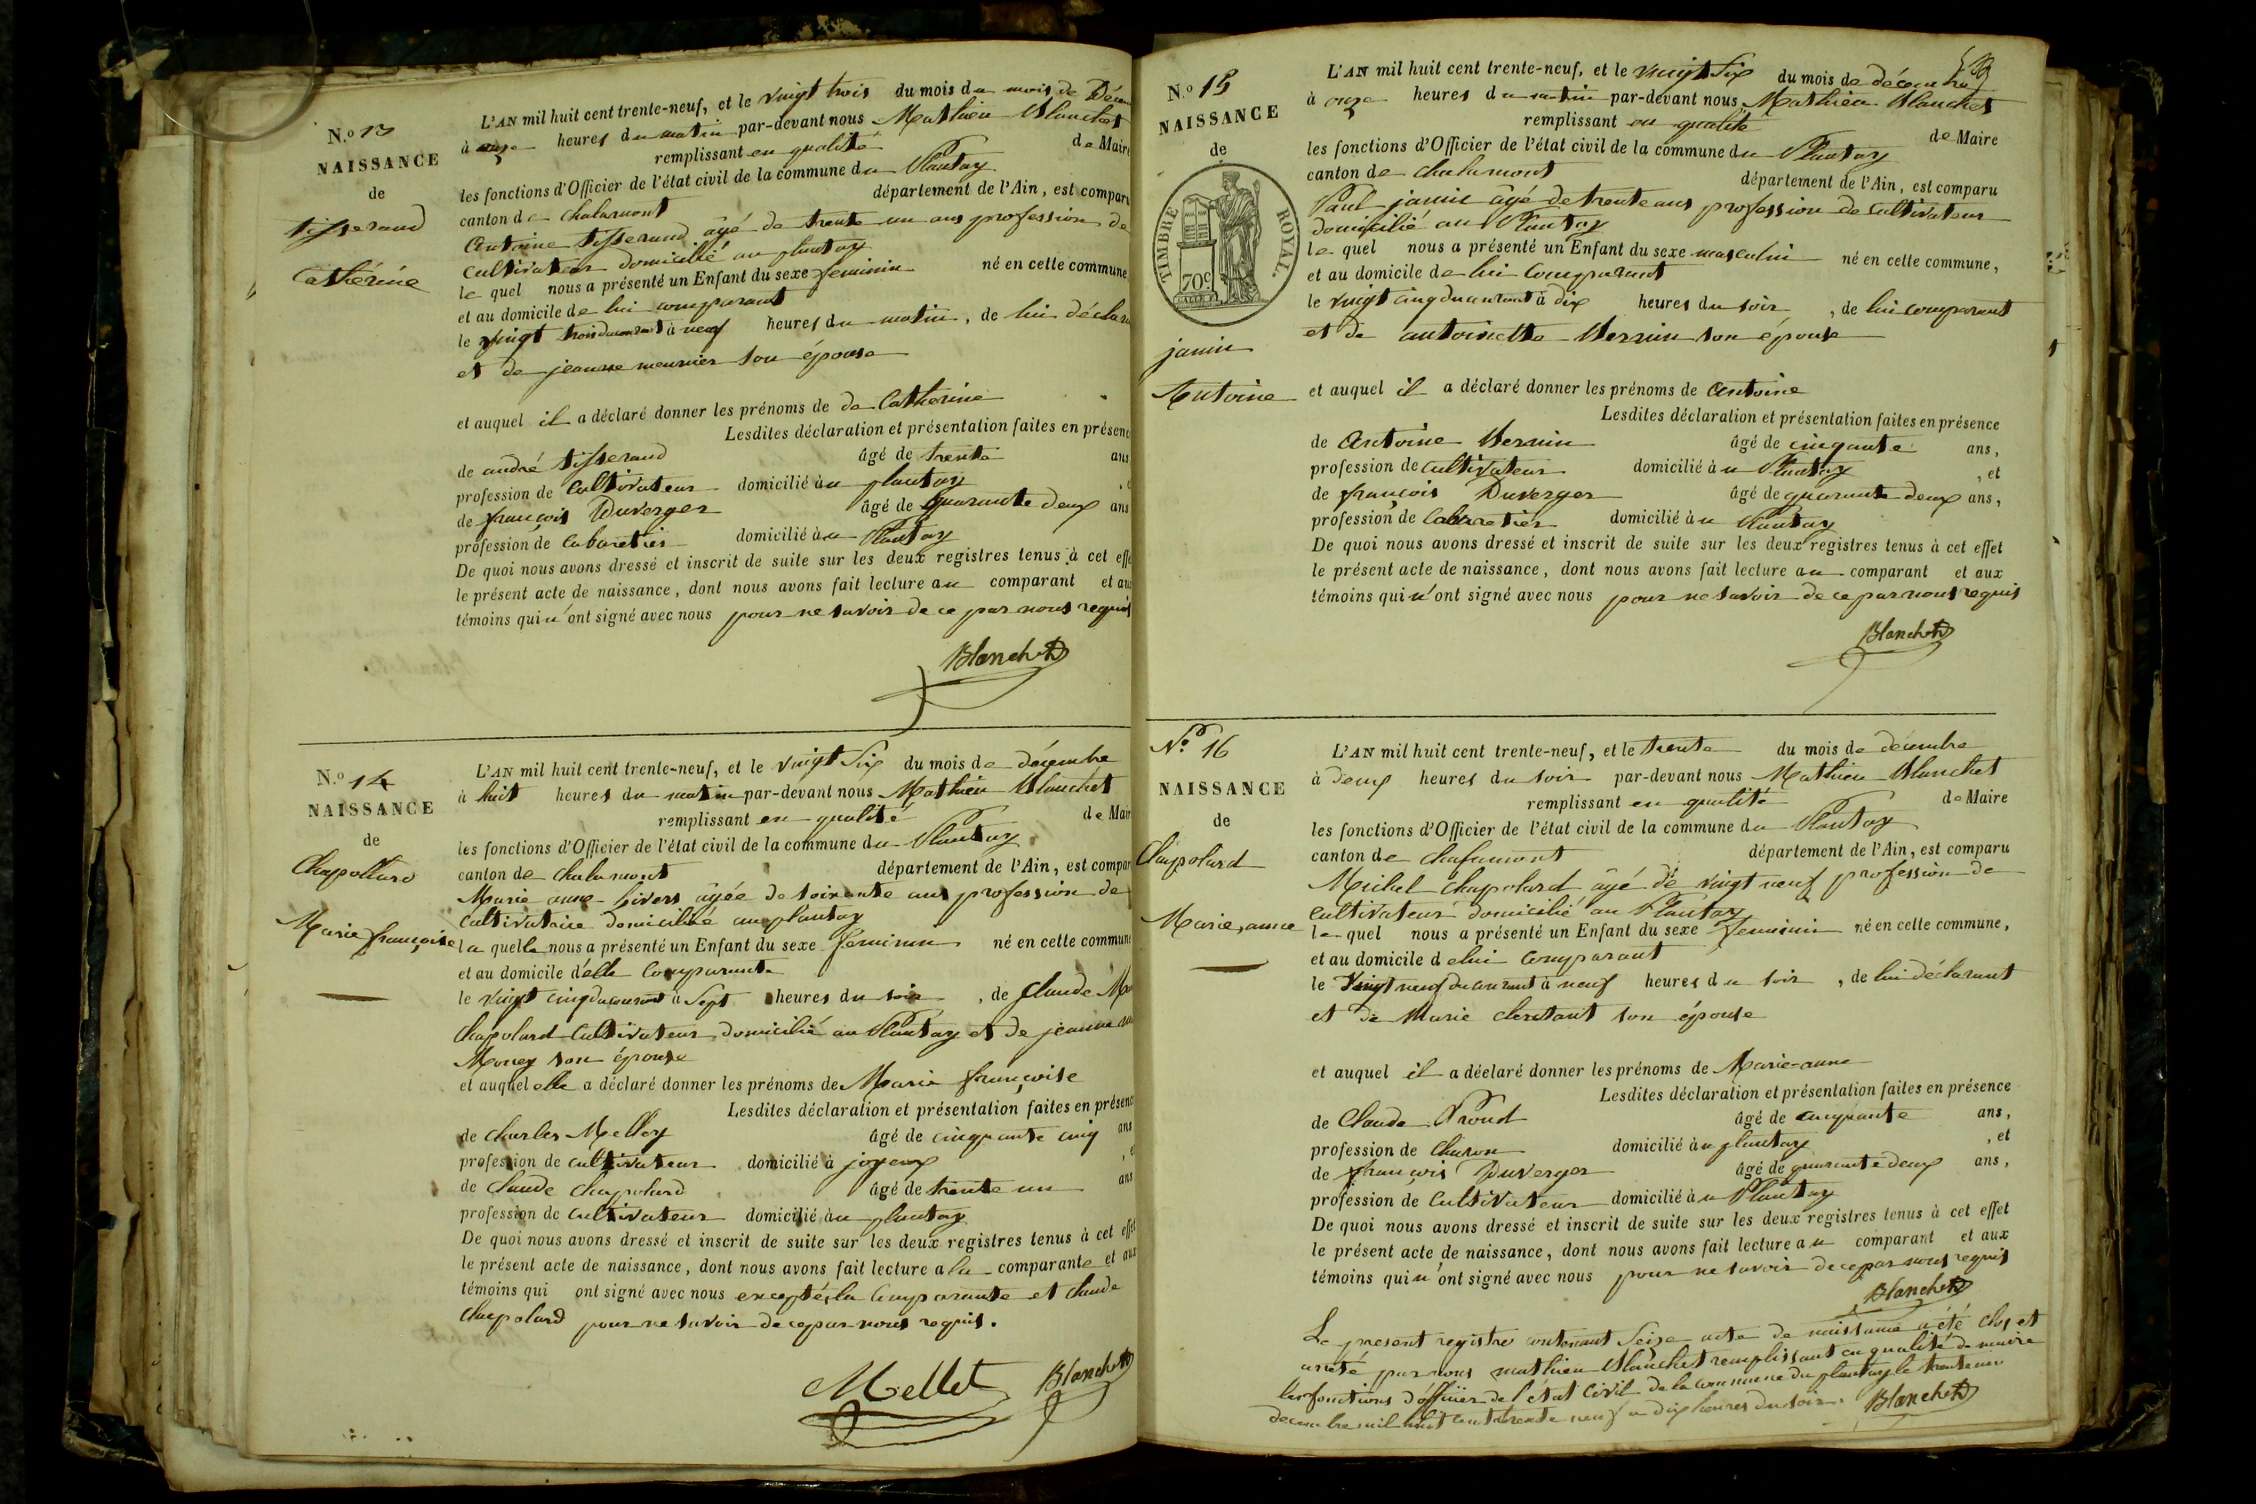 N.o 13
NAISSANCE
de
tisserand
Catherine
L'AN mil huit cent trente-neuf, et le vingt trois du mois du mois de Décem
à onze heures du matin par-devant nous Mathieu Blanchet
remplissant en qualité de Maire
les fonctions d'Officier de l'état civil de la commune du Plantay
canton de chalamont département de l'Ain, est comparu
Antoine tisserand âgé de trente un ans profession de
cultivateur domicilié au plantay
le quel nous a présenté un Enfant du sexe feminin né en cette commune
et au domicile de lui comparant
le vingt trois du courant à neuf heures du matin, de lui déclara
et de jeanne meunier son épouse
et auquel il a déclaré donner les prénoms de de Catherine
Lesdites déclaration et présentation faites en présenc
de andré tisserand âgé de trente ans
profession de Cultivateur domicilié au plantay, e
de françois Duverger âgé de quarante deux ans
profession de Cabaretier domicilié au Plantay
De quoi nous avons dressé et inscrit de suite sur les deux registres tenus à cet effe
le présent acte de naissance, dont nous avons fait lecture au comparant et aux
témoins qui n'ont signé avec nous pour ne savoir de ce par nous requis
Blanchet
N.o 14
NAISSANCE
de
Chapollard
Marie françoise
L'AN mil huit cent trente-neuf, et le vingt Six du mois de décembre
à huit heures du matin par-devant nous Mathieu Blanchet
remplissant en qualité de Mair
les fonctions d'Officier de l'état civil de la commune du Plantay
canton de chalamont département de l'Ain, est compar
Marie anne âgée de soixante ans profession de
Cultivatrice domicilié au plantay
la quelle nous a présenté un Enfant du sexe feminin né en cette commune
et au domicile d'elle Comparante
le vingt cinq du courant à Sept heures du soir, de Claude
Chapolard Cultivateur domicilié au Plantay et de jeanne
Morey son épouse
et auquel elle a déclaré donner les prénoms de Marie françoise
Lesdites déclaration et présentation faites en présenc
de charles Melley âgé de cinquante cinq ans
profession de cultivateur domicilié à joyeux, e
de Claude Chapolard âgé de trente un ans
profession de cultivateur domicilié au plantay
De quoi nous avons dressé et inscrit de suite sur les deux registres tenus à cet effet
le présent acte de naissance, dont nous avons fait lecture a la comparante et aux
témoins qui ont signé avec nous excepté la Comparante et claude
Chapolard pour ne savoir de ce par nous requis.
Mellet Blanchet
N.o 15
NAISSANCE
de
TIMBRE ROYAL.
70c
janin
Antoine
L'AN mil huit cent trente-neuf, et le vingt Six du mois de décembre
à onze heures du matin par-devant nous Mathieu Blanchet
remplissant en qualité de Maire
les fonctions d'Officier de l'état civil de la commune du Plantay
canton de chalamont département de l'Ain, est comparu
Paul janin âgé de trente ans profession de cultivateur
domicilié au Plantay
le quel nous a présenté un Enfant du sexe masculin né en cette commune,
et au domicile de lui Comparant
le vingt cinq du courant à dix heures du soir, de lui comparant
et de antoinette Verrin son épouse
et auquel il a déclaré donner les prénoms de Antoine
Lesdites déclaration et présentation faites en présence
de Antoine Verrin âgé de cinquante ans,
profession de Cultivateur domicilié au Plantay, et
de françois Duverger âgé de quarante deux ans,
profession de Cabaretier domicilié au Plantay
De quoi nous avons dressé et inscrit de suite sur les deux registres tenus à cet effet
le présent acte de naissance, dont nous avons fait lecture au comparant et aux
témoins qui n'ont signé avec nous pour ne savoir de ce par nous requis
Blanchet
N.o 16
NAISSANCE
de
Chapolard
Marie anne
L'AN mil huit cent trente-neuf, et le trente du mois de décembre
à deux heures du soir par-devant nous Mathieu Blanchet
remplissant en qualité de Maire
les fonctions d'Officier de l'état civil de la commune du Plantay
canton de chalamont département de l'Ain, est comparu
Michel Chapolard âgé de vingt neuf profession de
Cultivateur domicilié au Plantay
le quel nous a présenté un Enfant du sexe feminin né en cette commune,
et au domicile de lui Comparant
le vingt neuf du courant à neuf heures du soir, de lui déclarant
et de Marie son épouse
et auquel il a déclaré donner les prénoms de Marie-anne
Lesdites déclaration et présentation faites en présence
de Claude Proud âgé de cinquante ans,
profession de Charon domicilié au plantay, et
de françois Duverger âgé de quarante deux ans,
profession de Cultivateur domicilié au Plantay
De quoi nous avons dressé et inscrit de suite sur les deux registres tenus à cet effet
le présent acte de naissance, dont nous avons fait lecture au comparant et aux
témoins qui n'ont signé avec nous pour ne savoir de ce par nous requis
Blanchet
Le present registre contenant Seize acte de naissance a été clos et
arreté par nous mathieu Blanchet remplissant en qualité de maire
les fonctions d'officier de l'état Civil de la commune du plantay le trente un
decembre mil huit cent trente neuf a dix heures du soir. Blanchet